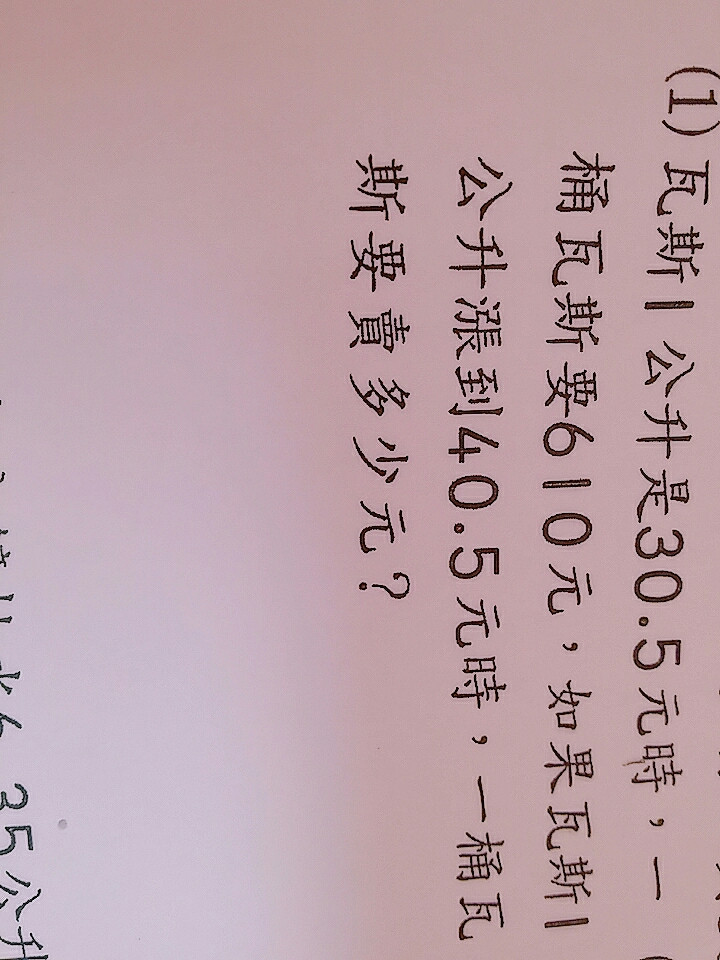 (1) 瓦斯1公升是30.5元時，一
桶瓦斯要610元，如果瓦斯1
公升漲到40.5元時，一桶瓦
斯要賣多少元？
35公升